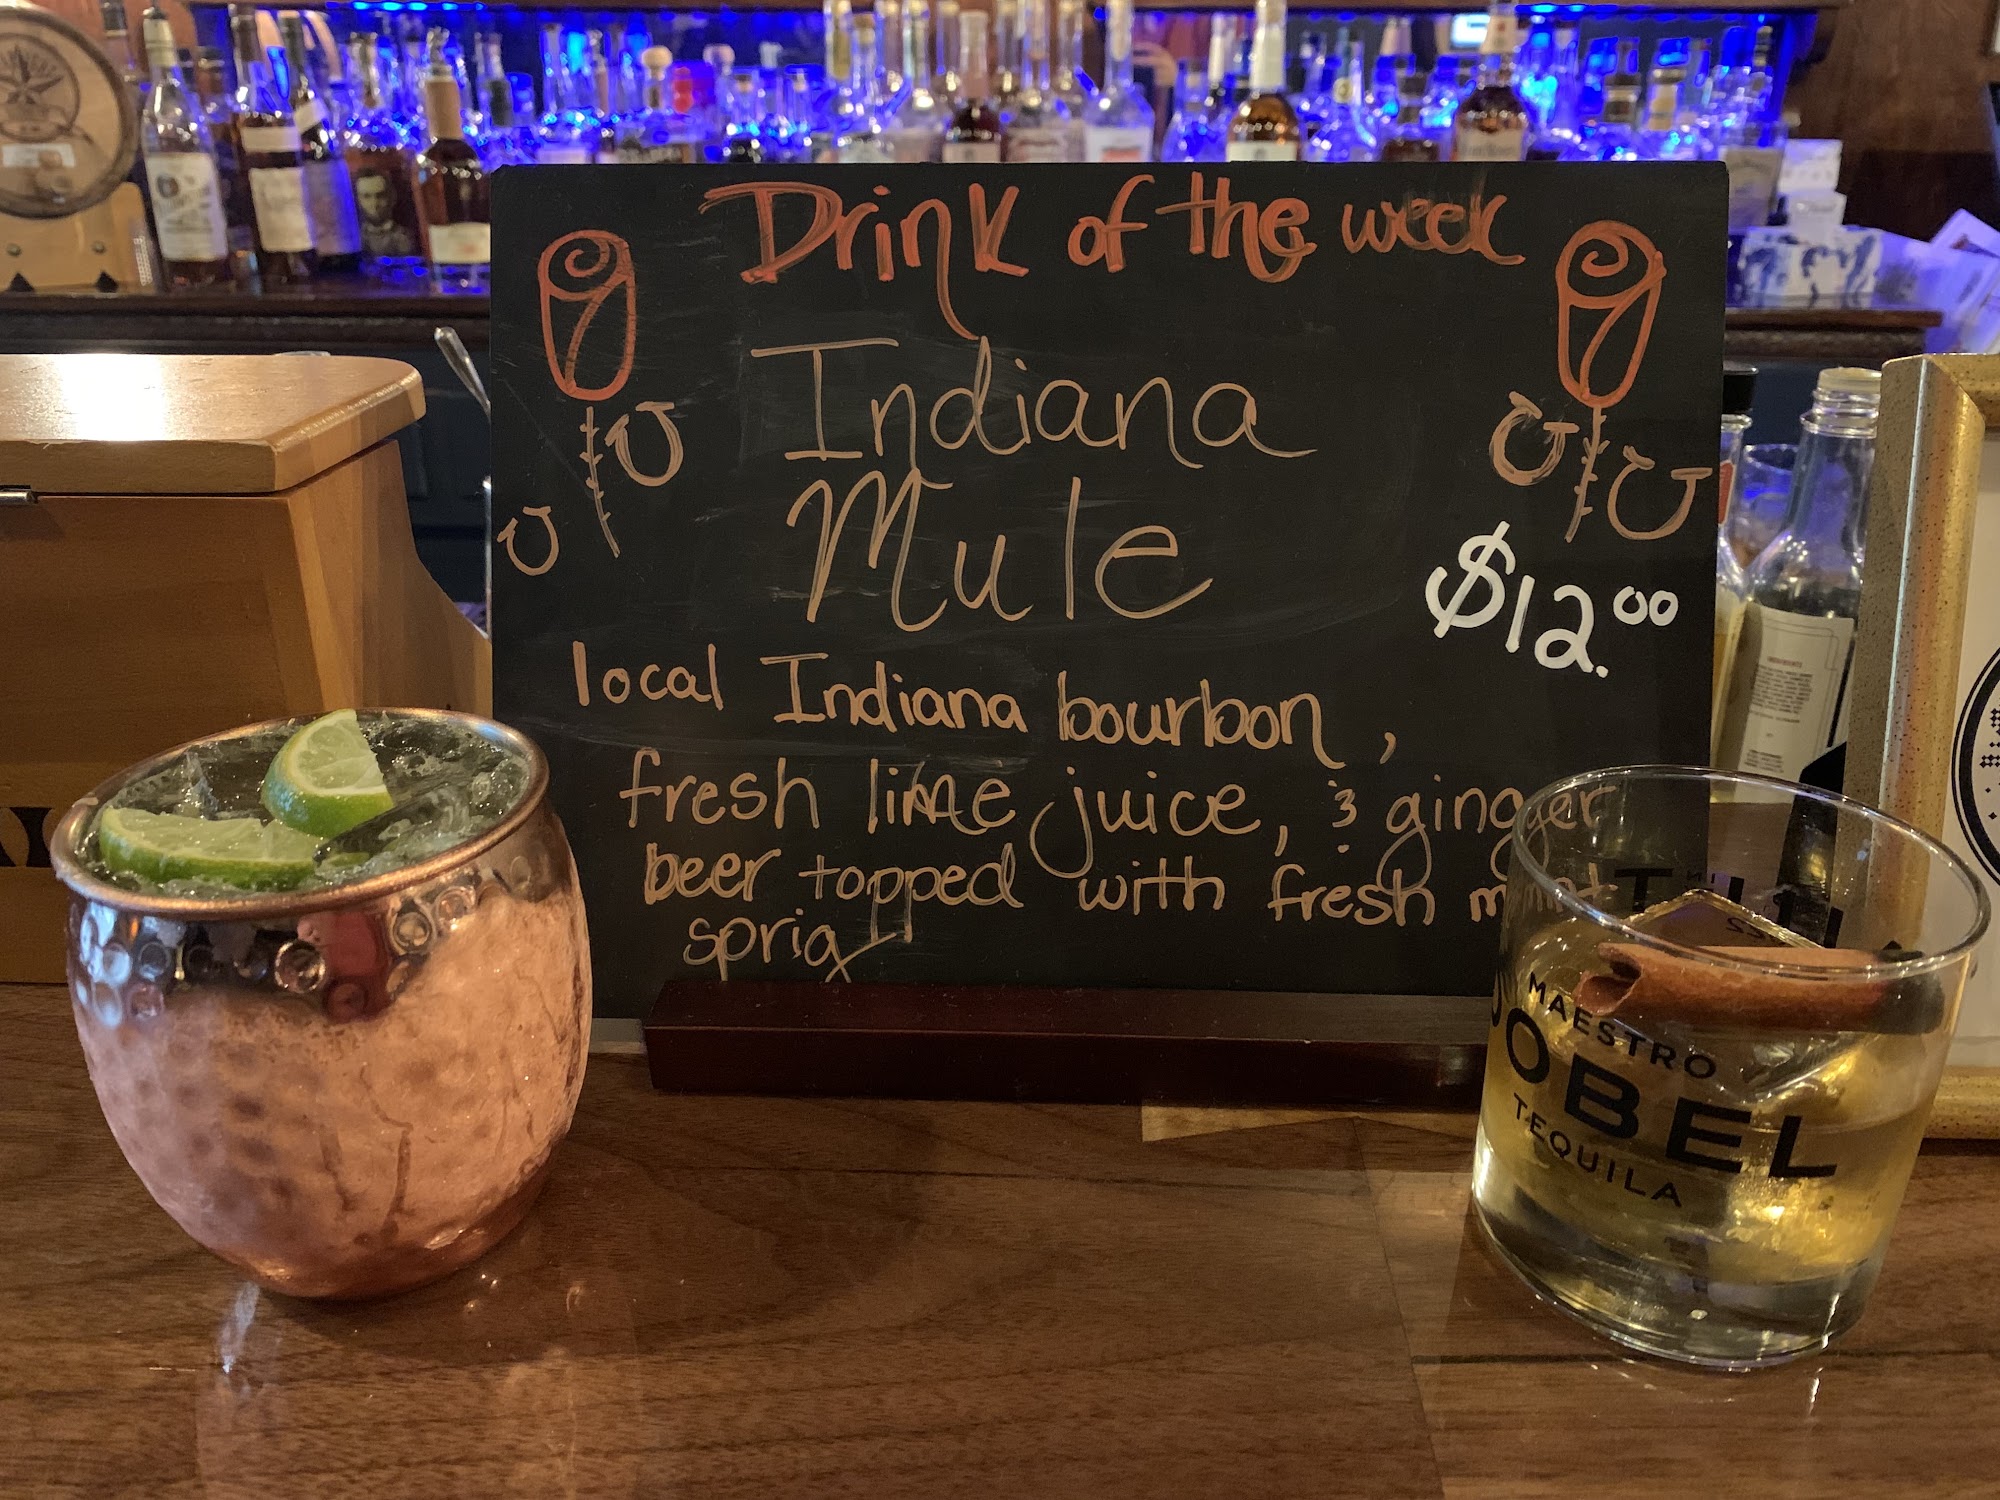 Drink of the week
Indiana
Mule
$12.00
local Indiana bourbon,
fresh lime juice, & ginger
beer topped with fresh mint
sprig
MAESTRO
DOBEL
TEQUILA